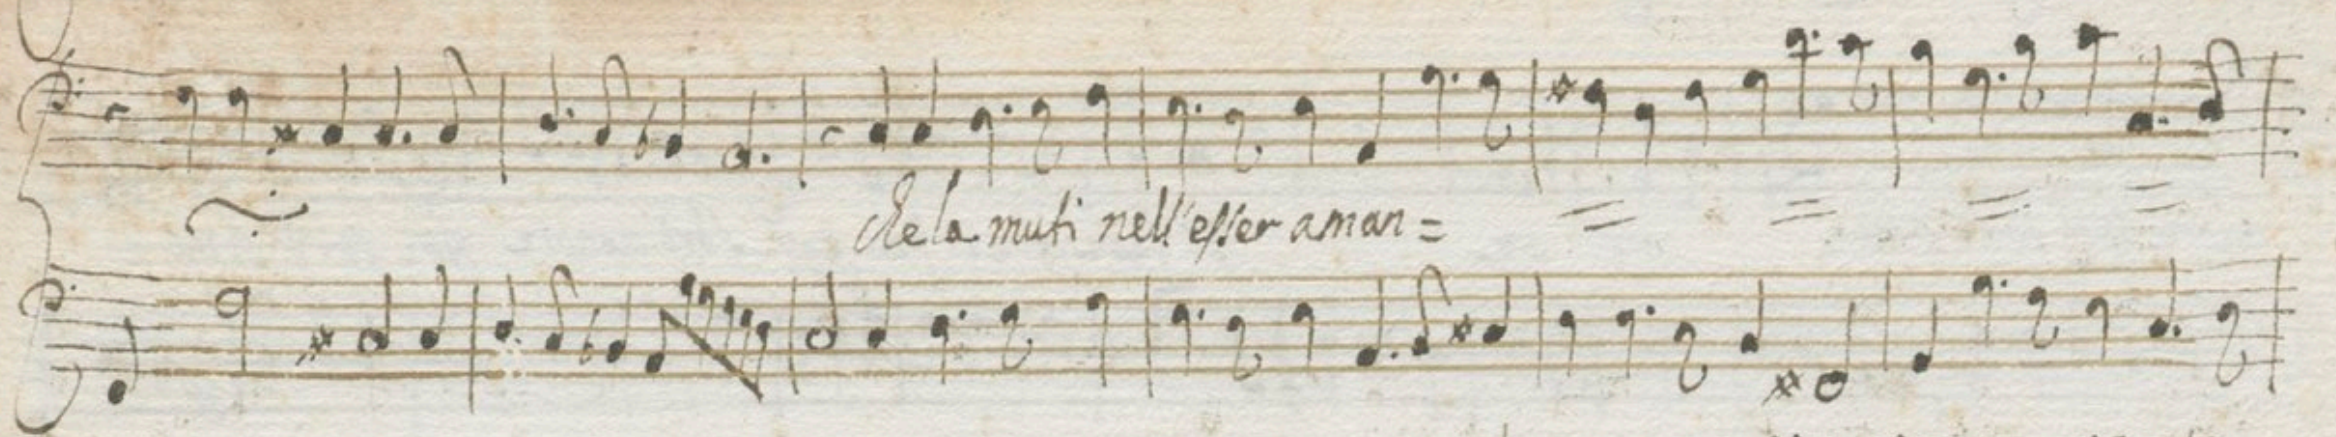 che la muti nell'esser aman=